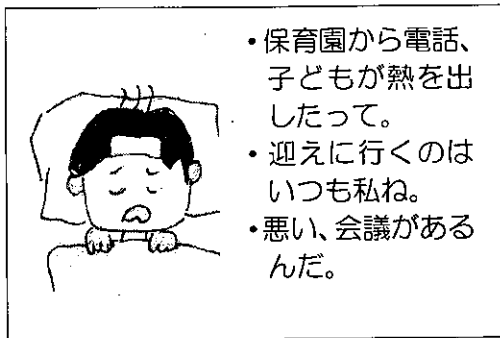 ・保育園から電話、
子どもが熱を出
したって。
・迎えに行くのは
いつも私ね。
・悪い、会議がある
んだ。